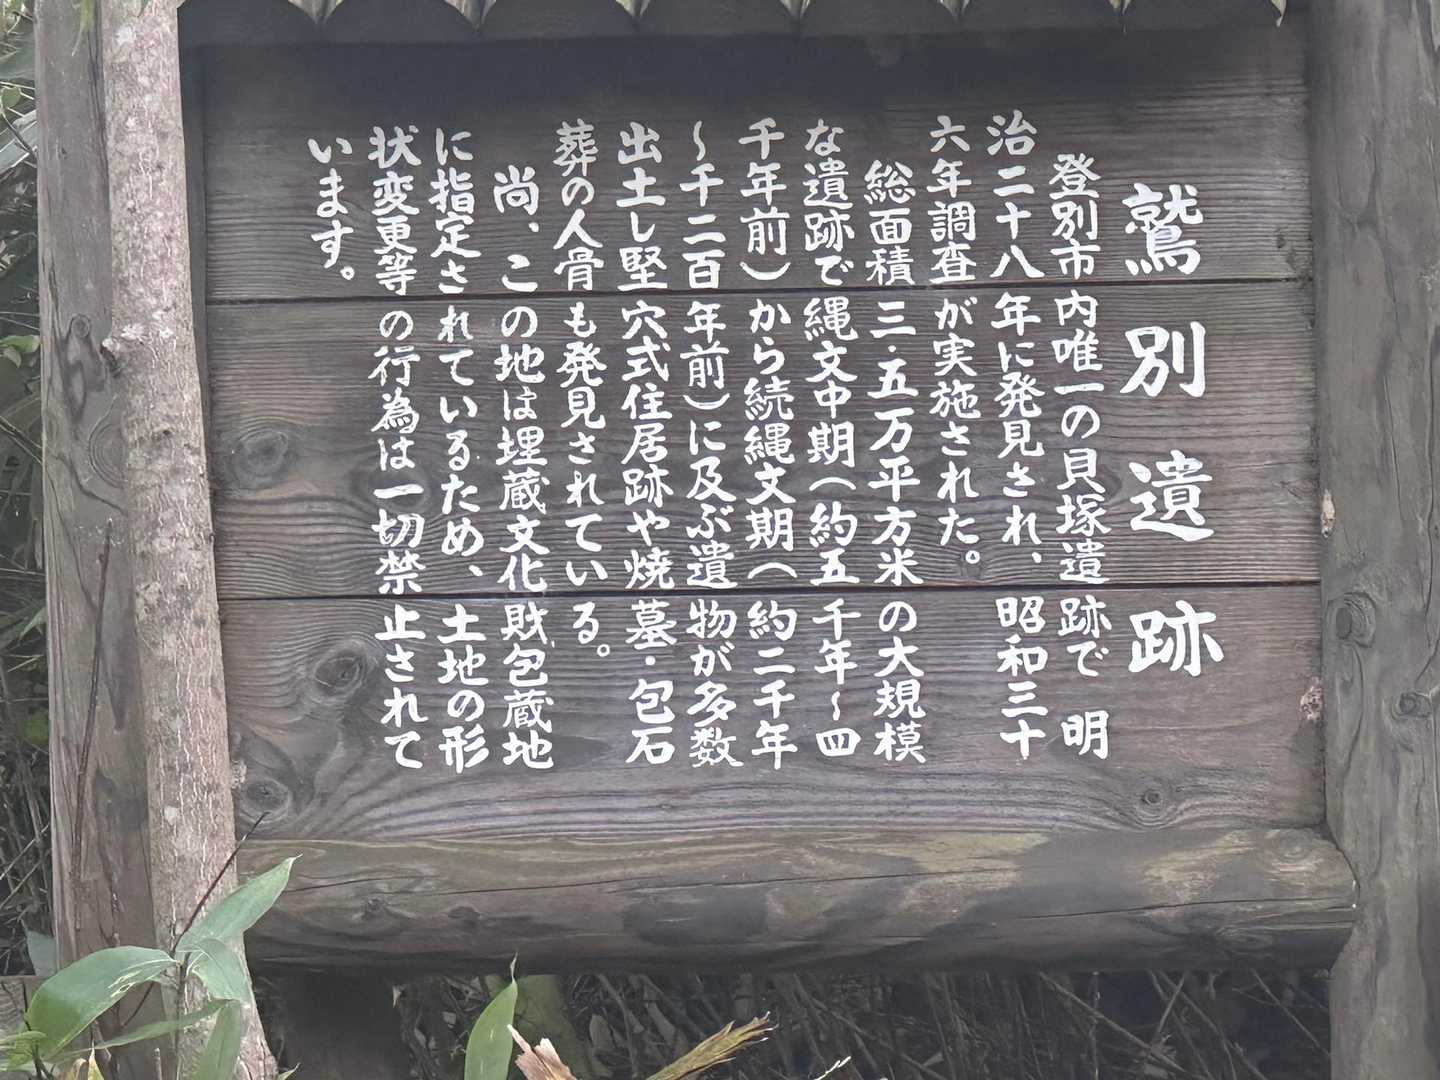 鷲別遺跡
登別市内唯一の貝塚遺跡で 明
治二十八年に発見され、昭和三十
六年調査が実施された。
総面積三・五万平方米の大規模
な遺跡で縄文中期(約五千年〜四
千年前)から続縄文期(約二千年
〜千二百年前)に及ぶ遺物が多数
出土し堅穴式住居跡や焼墓・包石
葬の人骨も発見されている。
尚、この地は埋蔵文化財包蔵地
に指定されているため、土地の形
状変更等の行為は一切禁止されて
います。